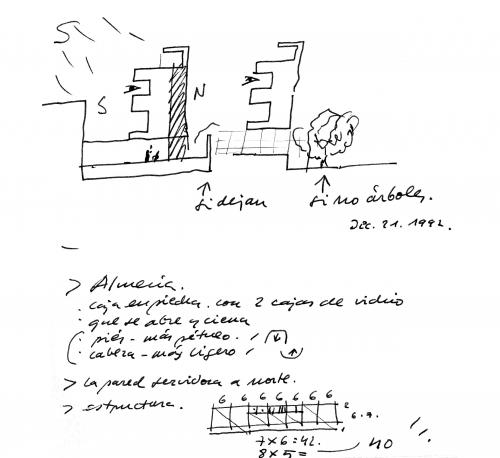 S
S
N
si dejan
si no árboles.
Dic. 21. 1992.
> Almería.
· caja en piedra. con 2 cajas de vidrio
· que se abre y cierra
· piés - más pétreo.
· cabeza - más ligero
> la pared servidora a norte.
> estructura.
6 6 6 6 6 6 6
7 x 6 = 42.
8 x 5 =
NO